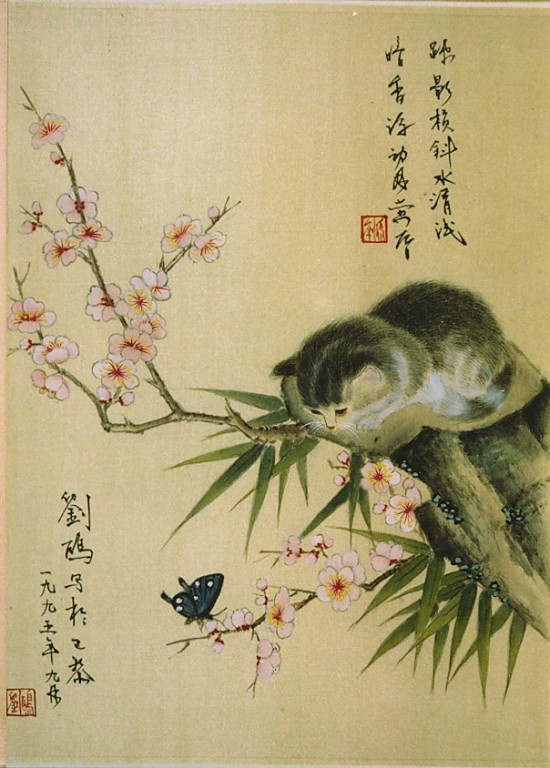 疎影横斜水清浅
暗香浮动月黄昏
劉鴎写於巴黎
一九九五年九月